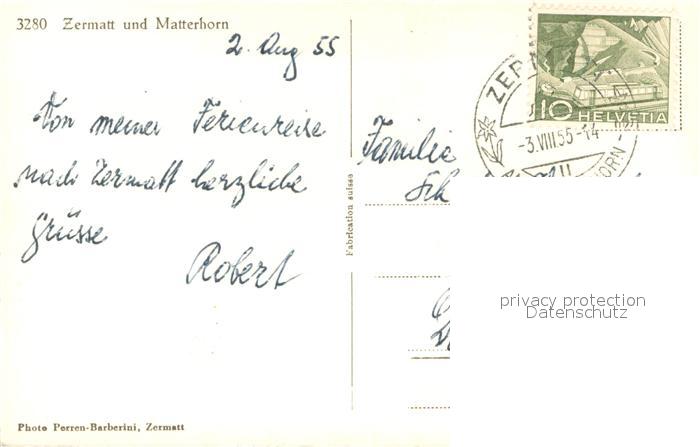 3280 Zermatt und Matterhorn
2. Aug 55
Von meiner Ferienreise
nach Zermatt herzliche
Grüsse
Robert
Photo Perren-Barberini, Zermatt
Fabrication suisse
10 HELVETIA
ZERMATT
-3.VIII.55-14
HORN
Familie
Sch
privacy protection
Datenschutz